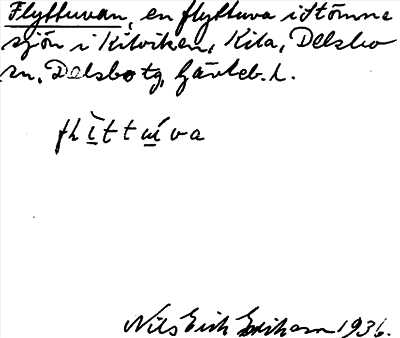 Flyttuvan, en flyttuva i Stömne
sjön i Kitviken, Kila, Delsbo
sn, Delsbo tg, Gävleb. l.
flìttúva
Nils Erik Erikson 1936.